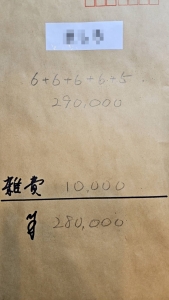 6+6+6+6+5.
290,000
雜費 10,000
280,000